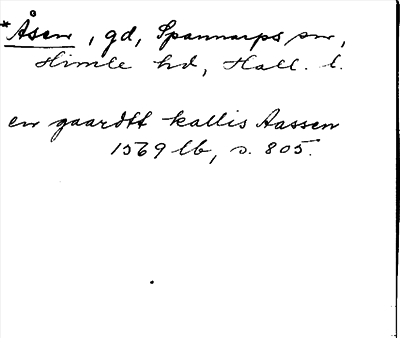 *Åsen, gd, Spannarps sn,
Himle hd, Hall. l.
en gaardtt kallis Aassen
1569 lb, s. 805.